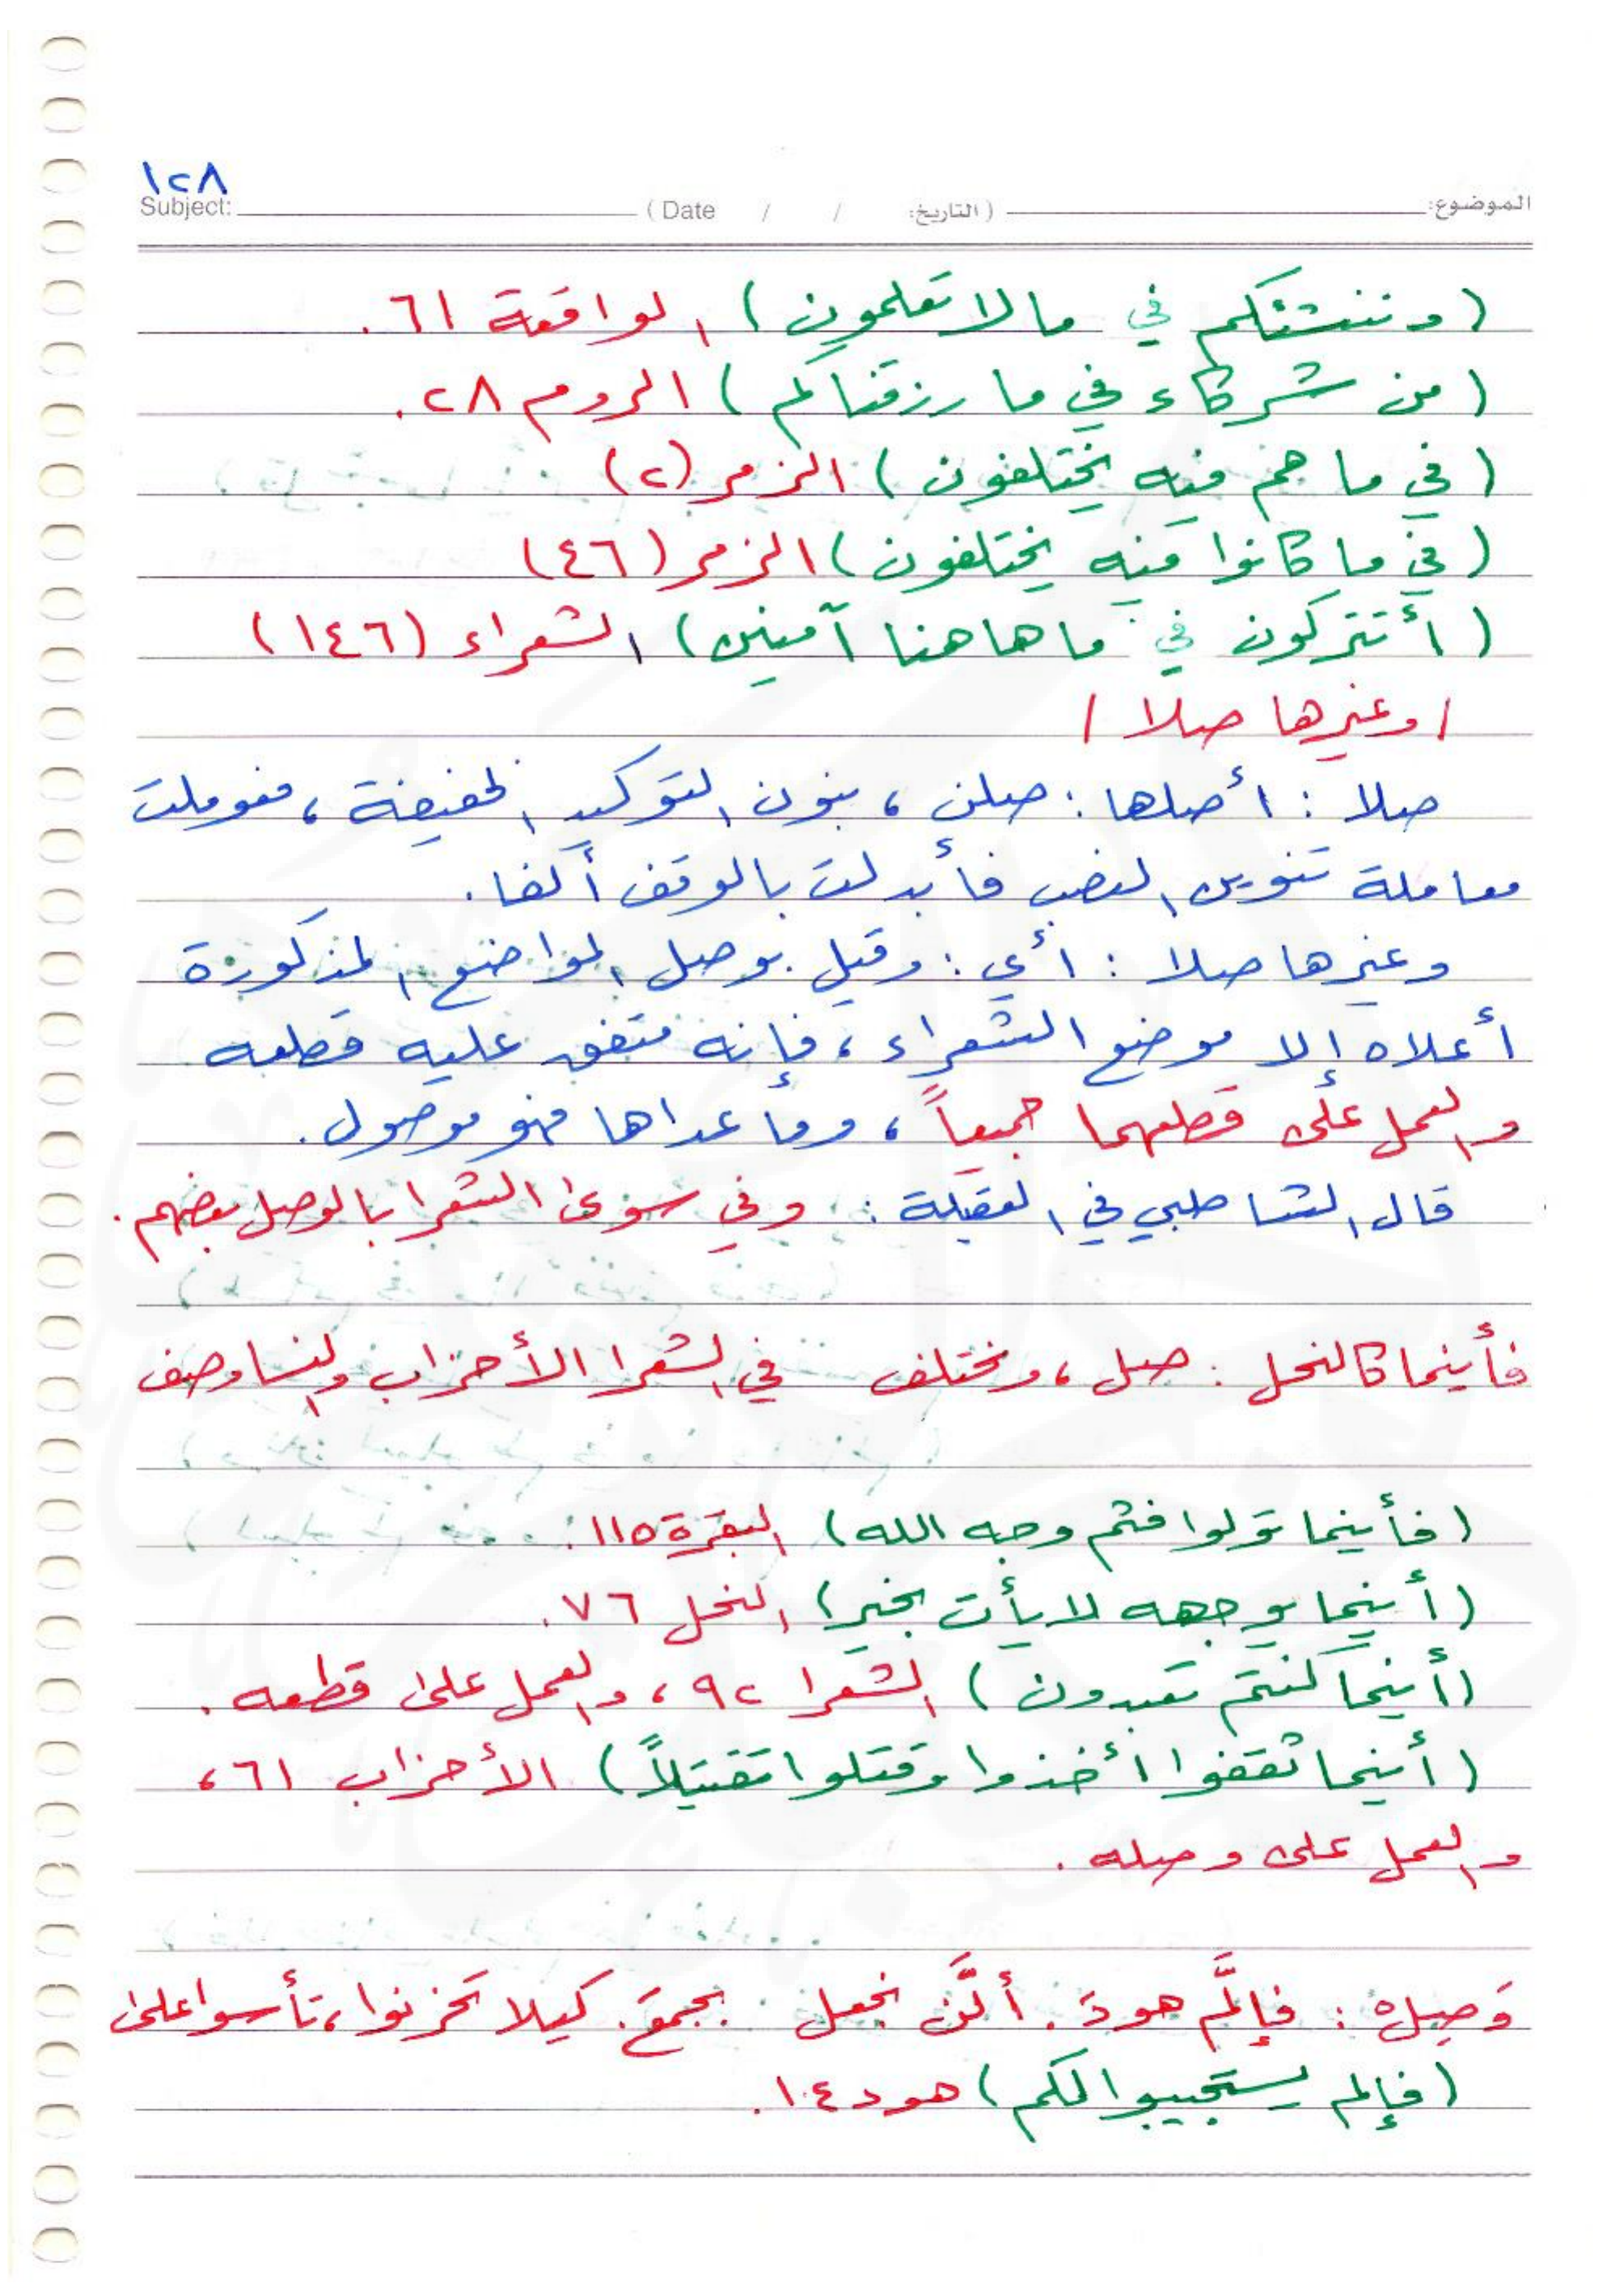 ١٢٨
الموضوع: (التاريخ: / / Date ) Subject:
(وننشئكم في ما لا تعلمون) الواقعة ٦١.
(من شركاء في ما رزقناكم) الروم ٢٨.
(في ما هم فيه يختلفون) الزمر (٢)
(في ما كانوا فيه يختلفون) الزمر (٤٦)
(أتتركون في ما هاهنا آمنين) الشعراء (١٤٦)
/ وغيرها صلا /
صلا : أصلها : صلن ، بنون التوكيد الخفيفة ، فعوملت
معاملة تنوين النصب فأبدلت بالوقف ألفا.
وغيرها صلا : أي : وقيل بوصل المواضع المذكورة
أعلاه إلا موضع الشعراء ، فإنه متفق عليه قطعه
والعمل على قطعهما جميعاً ، وما عداها فهو موصول.
قال الشاطبي في العقيلة : وفي سوى الشعرا بالوصل بعضهم.
فأينما كالنحل : صل ، ومختلف في الشعرا الأحزاب والنسا وصف
(فأينما تولوا فثم وجه الله) البقرة ١١٥.
(أينما يوجهه لا يأت بخير) النحل ٧٦.
(أينما كنتم تعبدون) الشعرا ٩٢ ، والعمل على قطعه.
(أينما ثقفوا أخذوا وقتلوا تقتيلاً) الأحزاب ٦١ ،
والعمل على وصله.
وَصِلْ : فإلَّم هودَ. ألَّن نجعل نجمعَ. كيلا تحزنوا ، تأسوا على
(فإلم يستجيبوا لكم) هود ١٤.